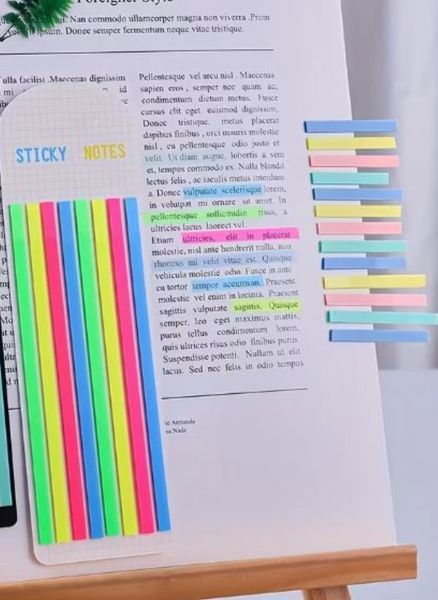 Foreigner Style
Nan commodo ullamcorper magna non viverra .Proin
ipsum. Donec semper fermentum neque vitae tristique.
ulla facilisi .Maecenas dignissim
id
STICKY NOTES
Pellentesque vel arcu nisl . Maecenas
sapien eros , semper nec quam ac,
condimentum dictum metus. Fusce
cursus elit eget euismod dignissim.
Donec tristique, metus placerat
dapibus finibus , orci mauris molestie
nisl, eu pellentesque odio justo et
velit. Ut diam augue, lobortis a sem
et, tempus commodo ex. Nulla blandit
lectus felis , ac iaculis metus interdum
a. Donec vulputate scelerisque lorem,
in volutpat mi ornare sit amet. In
pellentesque sollicitudin risus, a
ultricies lacus laoreet vel.
Etiam ultricies, elit in placerat
molestie, nisl ante hendrerit nulla, non
rhoncus mi velit vitae est. Quisque
vehicula molestie odio. Fusce in ante
eu tortor tempor accumsan. Praesent
molestie vel enim in lacinia. Praesent
sagittis vulputate sagittis. Quisque
semper, leo eget maximus mattis,
purus tellus condimentum lorem,
quis ultrices risus odio finibus purus.
Suspendisse potenti. Nullam ut elit
lacus. Sed nec felis in odio tempus